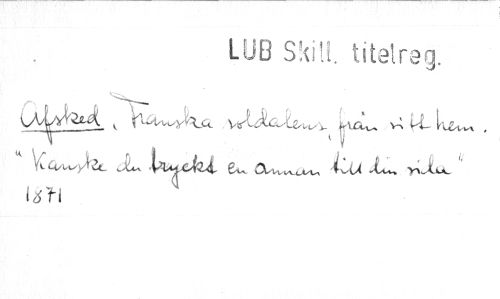 LUB Skill. titelreg.
Afsked, Franska soldatens, från sitt hem.
"Kanske du tryckt en annan till din sida"
1871